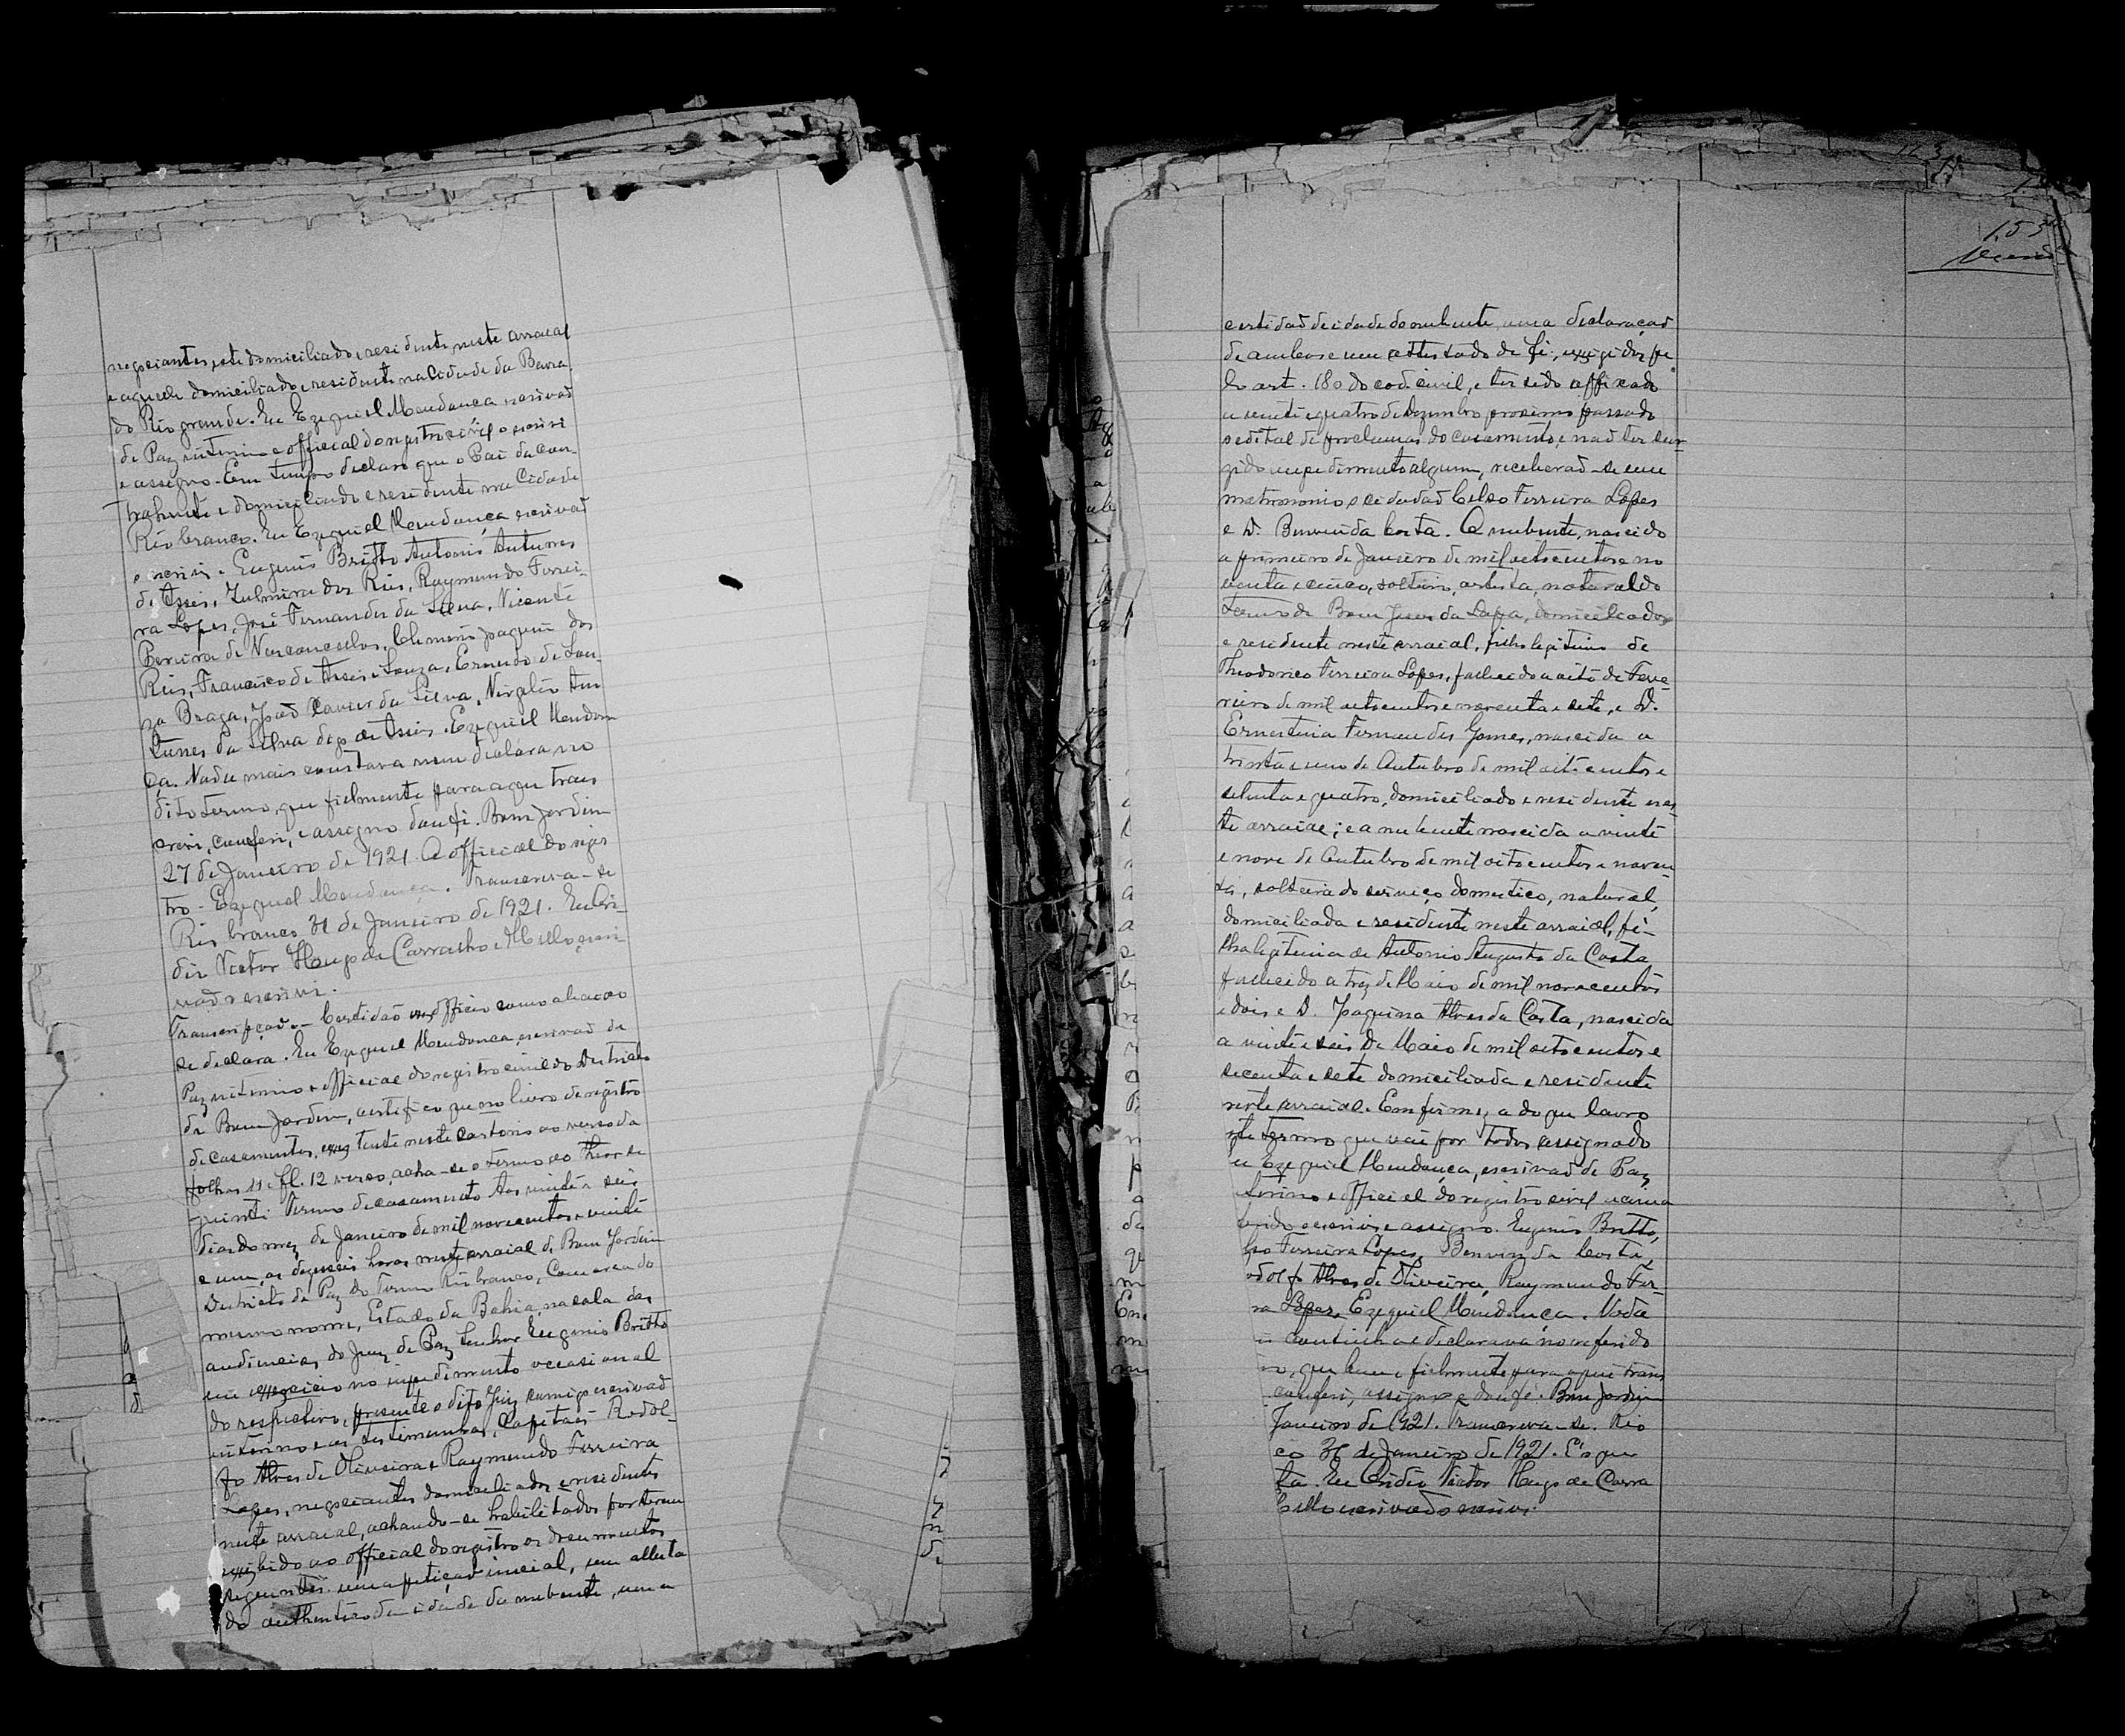 negociantes, este domiciliado e residente neste arraial
e aquelle domiciliado e residente na Cidade da Barra
do Rio grande. Eu Ezequiel Mendonça escrivaõ
de Paz interino e official do registro civil o escrivi
e assigno. Em tempo declaro que o Pai da con-
trahente e domiciliado e residente na Cidade
Rio branco. Eu Ezequiel Mendonça escrivaõ
o escrivi. Eugenio Britto Antonio Antunes
de Assis, Zulmira dos Reis, Raymundo Ferrei-
ra Lopes, José Fernandes da Silva, Vicente
Pereira de Vasconcellos, Clemente Joaquim dos
Reis, Francisco de Assis e Souza, Ernesto de Sou-
sa Braga, Joaõ Xavier da Silva, Virgilio An
tunes da Silva digo de Assis. Ezequiel Mendon
ça. Nada mais constava nem declara no
dito termo, que fielmente para aqui trans
crevi, conferi, e assigno dou fé. Bom Jardim
27 de Janeiro de 1921. O official do regis
tro - Ezequiel Mendonça. Transcreva-se
Rio branco 31 de Janeiro de 1921. Eu Cri-
dio Victor Hugo de Carvalho e Mello, escri
vaõ o escrivi.
Transcripçaõ - Certidaõ ex officio como abaixo
se declara. Eu Ezequiel Mendonça, escrivaõ de
Paz interino e official do registro civil do Districto
de Bom Jardim, certifico que no livro de registro
de casamentos, existente neste cartorio ao verso da
folhas 11 e fl. 12 verso, acha-se o termo do theor se
guinte: Termo de casamento Aos vinte e seis
dias do mez de Janeiro de mil novecentos e vinte
e um, as dezeseis horas neste arraial de Bom Jardim
Districto de Paz do Termo Rio branco, Comarca do
mesmo nome, Estado da Bahia, na sala das
audiencias do Juiz de Paz Senhor Eugenio Britto
em exercicio no impedimento occasional
do respectivo, presente o dito Juiz comigo escrivaõ
interino e as testemunhas, Capitaõ Rodol-
fo Alves de Oliveira e Raymundo Ferreira
Lopes, negociantes domiciliados e residentes
neste arraial, achando-se habilitados por terem
exhibido ao official do registro os documentos
seguintes: uma petiçaõ inicial, um attesta
do authentico da idade da nubente, uma
155
certidaõ de idade do nubente, uma declaraçaõ
de ambos e um attestado de fé, exigidos pe
lo art. 180 do cod. civil, e ter sido affixado
a vinte e quatro de Dezembro proximo passado
o edital de proclamas do casamento, e naõ ter sur-
gido impedimento algum, receberaõ-se em
matrimonio o cidadaõ Celso Ferreira Lopes
e D. Benvinda Costa. O nubente, nascido
a primeiro de Janeiro de mil oitocentos e no
venta e cinco, solteiro, artista, natural do
termo de Bom Jesus da Lapa, domiciliado
e residente neste arraial, filho legitimo de
Theodorico Ferreira Lopes, fallecido a oito de Feve-
reiro de mil oitocentos e noventa e sete, e D.
Ernestina Fernandes Gomes, nascida a
trinta e um de Outubro de mil oitocentos e
setenta e quatro, domiciliado e residente nes
te arraial; e a nubente nascida a vinte
e nove de Outubro de mil oitocentos e noven
ta, solteira do serviço domestico, natural,
domiciliada e residente neste arraial, fi-
lha legitima de Antonio Augusto da Costa
fallecido a tres de Maio de mil novecentos
e dois e D. Joaquina Alves da Costa, nascida
a vinte e seis de Maio de mil oitocentos e
secenta e sete domiciliada e residente
neste arraial. Em firmeza do que lavro
este termo que vai por todos assignado
eu Ezequiel Mendonça, escrivaõ de Paz
terino e official do registro civil
o escrivi e assigno. Eugenio Britto,
lso Ferreira Lopes, Benvinda Costa,
odolfo Alves de Oliveira, Raymundo Fer-
ra Lopes, Ezequiel Mendonça. Nada
continha e declarava no referido
mo, que bem e fielmente para aqui trans
conferi, assigno e dou fé. Bom Jardim
Janeiro de 1921. Transcreva-se. Rio
co 31 de Janeiro de 1921. E o que
ta. Eu Cridio Victor Hugo de Carva
Mello escrivaõ o escrivi.